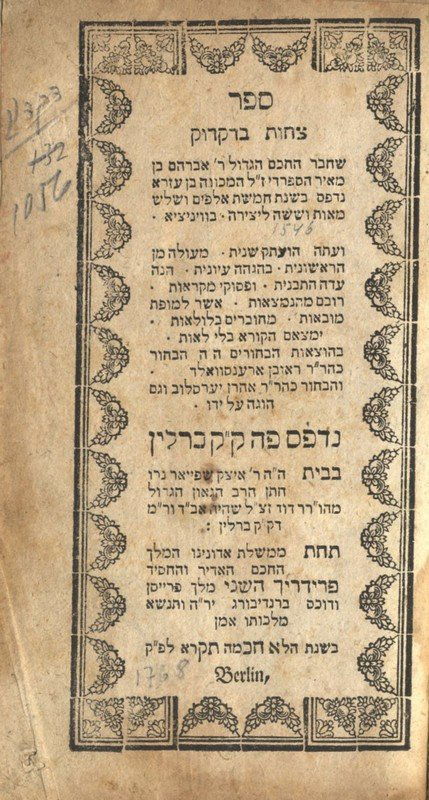 דקדוק
+32
1056
ספר
צחות בדקדוק
שחבר החכם הגדול ר׳ אברהם בן
מאיר הספרדי ז״ל המכונה בן עזרא
נדפס בשנת חמשת אלפים ושלש
מאות וששה ליצירה · בוויניציא ·
1546
ועתה הועתק שנית · מעולה מן
הראשונית · בהגהה עיונית · הנה
עדה התבנית · ופסוקי מקראות ·
רובם מהנמצאות · אשר למופת
מובאות · מחוברים בלולאות ·
ימצאם הקורא בלי לאות ·
בהוצאות הבחורים ה ה הבחור
כהר״ר ראובן ארענסוואלד ·
והבחור כהר״ר אהרן יערסלוב וגם
הוגה על ידו ·
נדפס פה ק״ק ברלין
בבית ה״ה ר׳ איצק שפייאר נרו
חתן הרב הגאון הגדול
מהו׳רר דוד זצ״ל שהיה אב״ד ור״מ
דק״ק ברלין :
תחת ממשלת אדונינו המלך
החכם האדיר והחסיד
פרידריך השני מלך פרייסן
ודוכס ברנדיבורג יר״ה ותנשא
מלכותו אמן
בשנת הלא חכמה תקרא לפ״ק
1768
Berlin,